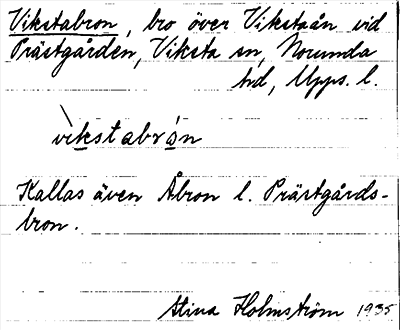 Vikstabron, bro över Vikstaån vid
Prästgården, Viksta sn, Norunda
hd, Upps. l.
vìkstabrón
Kallas även Åbron l. Prästgårds-
bron.
Stina Holmström 1935